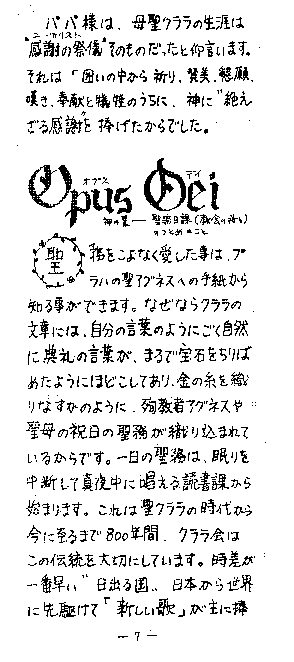 パパ様は、母聖クララの生涯は
エウカリスト
"感謝の祭儀"そのものだったと仰言います。
それは「囲いの中から祈り、賛美、懇願、
嘆き、奉献と犠牲のうちに、神に"絶え
ざる感謝"を捧げたからでした。
オプス デイ
Opus Dei
神の業 ― 聖務日課(教会の祈り)
おつとめのこと
聖務をこよなく愛した事は、プ
ラハの聖アグネスへの手紙から
知る事ができます。なぜならクララの
文章には、自分の言葉のようにごく自然
に典礼の言葉が、まるで宝石をちりば
めたようにほどこしてあり、金の糸を織
りなすかのように、殉教者アグネスや
聖母の祝日の聖務が織り込まれて
いるからです。一日の聖務は、眠りを
中断して真夜中に唱える読書課から
始まります。これは聖クララの時代から
今に至るまで800年間、クララ会は
この伝統を大切にしています。時差が
一番早い"日出る国"、日本から世界
に先駆けて「新しい歌」が主に捧
－7－